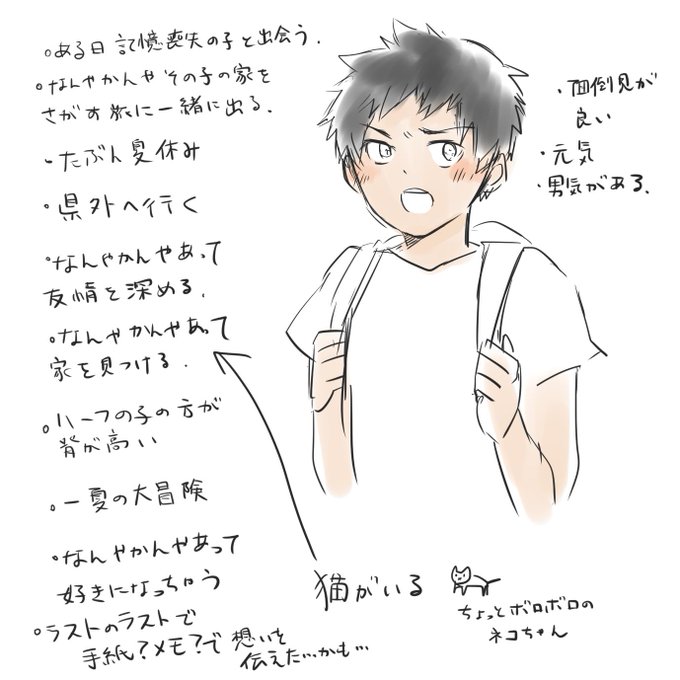 ○ある日記憶喪失の子と出会う.
○なんやかんやその子の家を
さがす旅に一緒に出る.
・たぶん夏休み
・県外へ行く
○なんやかんやあって
友情を深める.
○なんやかんやあって
家を見つける.
○ハーフの子の方が
背が高い
○一夏の大冒険
・なんやかんやあって
好きになっちゃう
○ラストのラストで
手紙?メモ?で想いを
伝えた…かも…
・面倒見が
良い
・元気
・男気がある.
猫がいる
ちょっとボロボロの
ネコちゃん